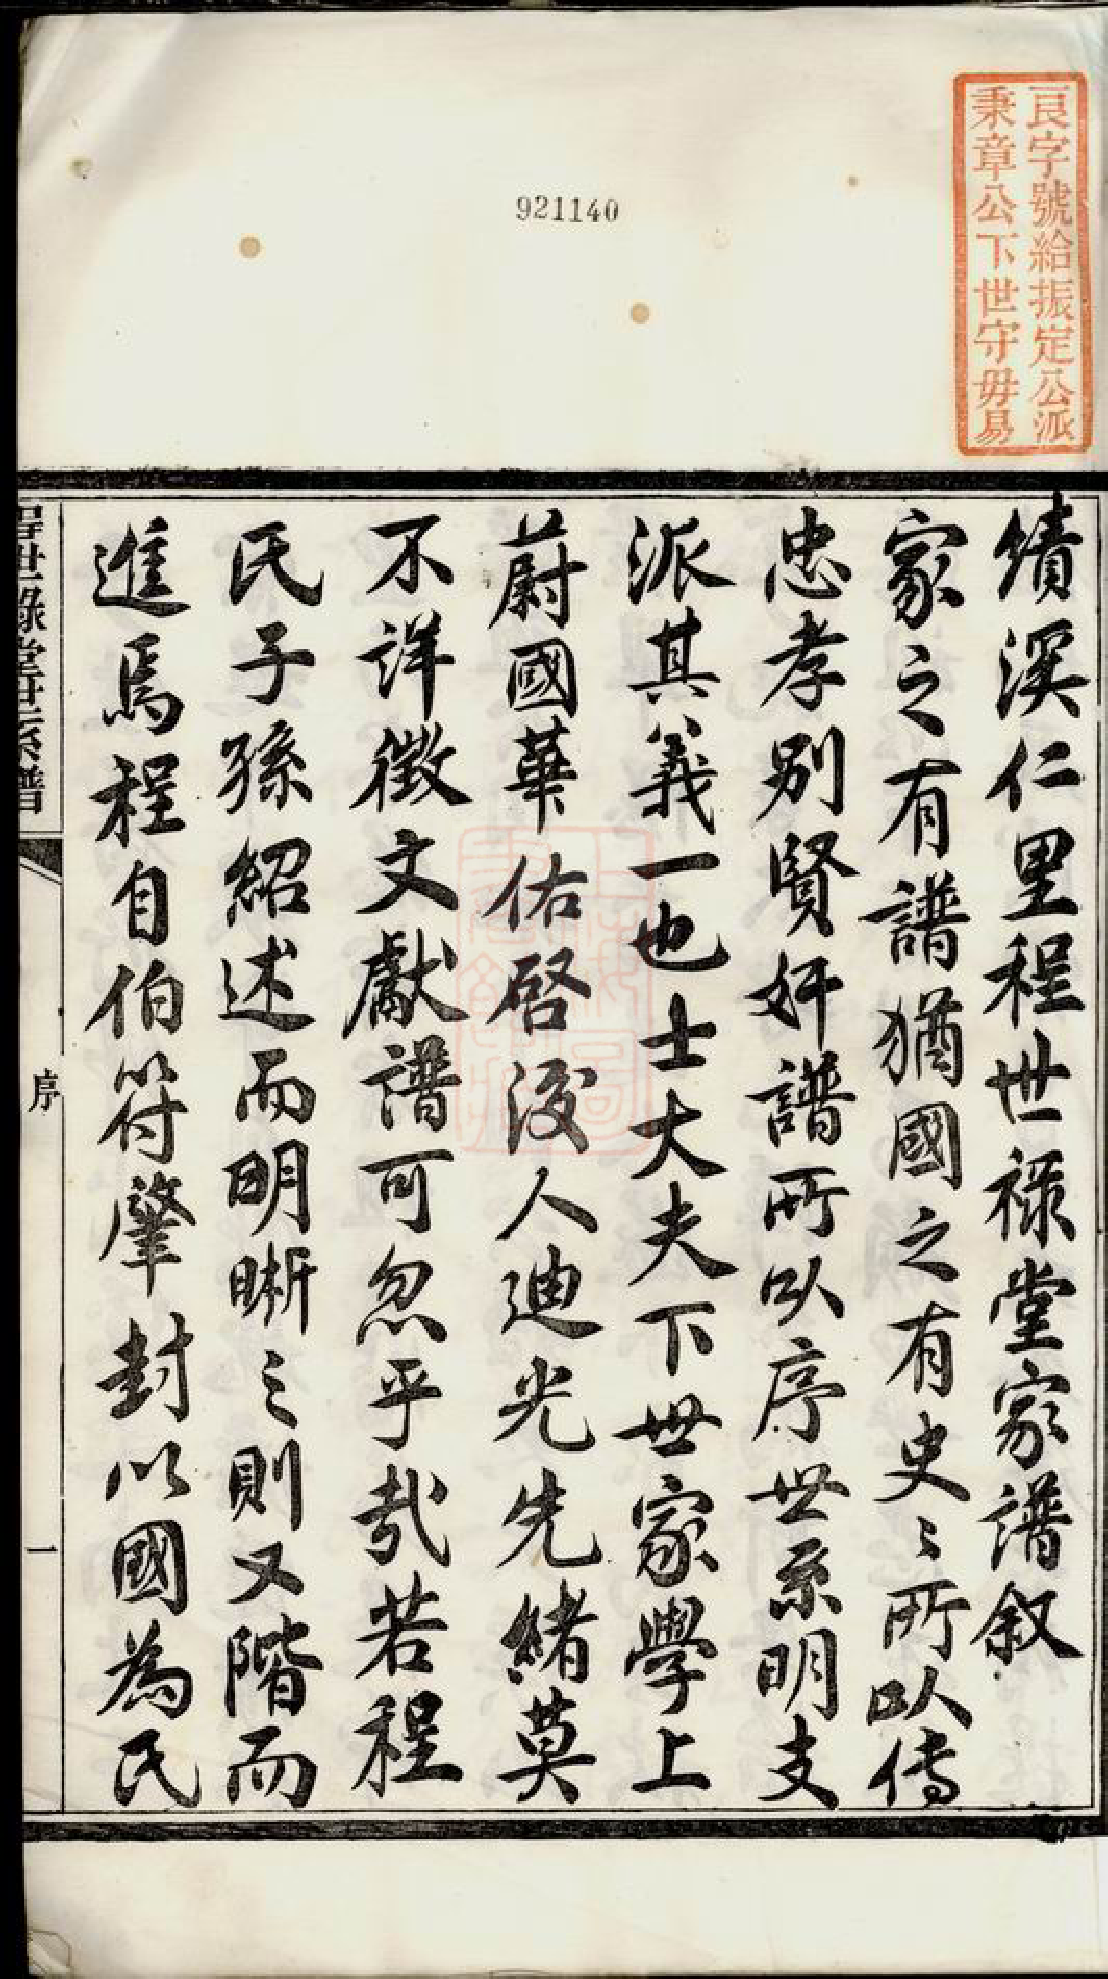 艮字號給振定公派
秉章公下世守毋易
921140
績溪仁里程世祿堂家譜叙
家之有譜猶國之有史〻所以傳
忠孝別賢奸譜所以序世系明支
派其義一也士大夫下世家學上
蔚國華佑啓後人迪光先緒莫
不詳徵文獻譜可忽乎哉若程
氏子孫紹述而明晰之則又階而
進焉程自伯符肇封以國為氏
程世祿堂世系譜
序
一